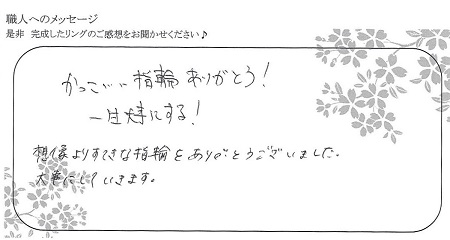 職人へのメッセージ
是非 完成したリングのご感想をお聞かせください♪
かっこいい指輪ありがとう!
一生大事にする!
想像よりすてきな指輪をありがとうございました。
大事にしていきます。